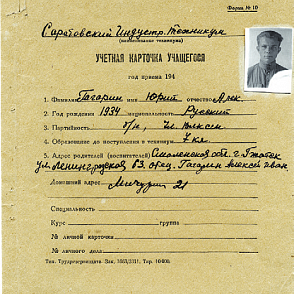 Форма № 10
Саратовский Индустр. Техникум
(наименование техникума)
УЧЕТНАЯ КАРТОЧКА УЧАЩЕГОСЯ
год приема 194
1. Фамилия Гагарин имя Юрий отчество Алек.
2. Год рождения 1934 национальность Русский
3. Партийность б/п, чл. ВЛКСМ
4. Образование до поступления в техникум 7 кл.
5. Адрес родителей (воспитателей) Смоленская обл. г. Гжатск
ул. Ленинградская 83. отец. Гагарин Алексей Иван.
Домашний адрес Мичурин 21
Специальность
Курс группа
№ личной карточки
№ личного дела
Тип. Трудрезервиздата Зак.